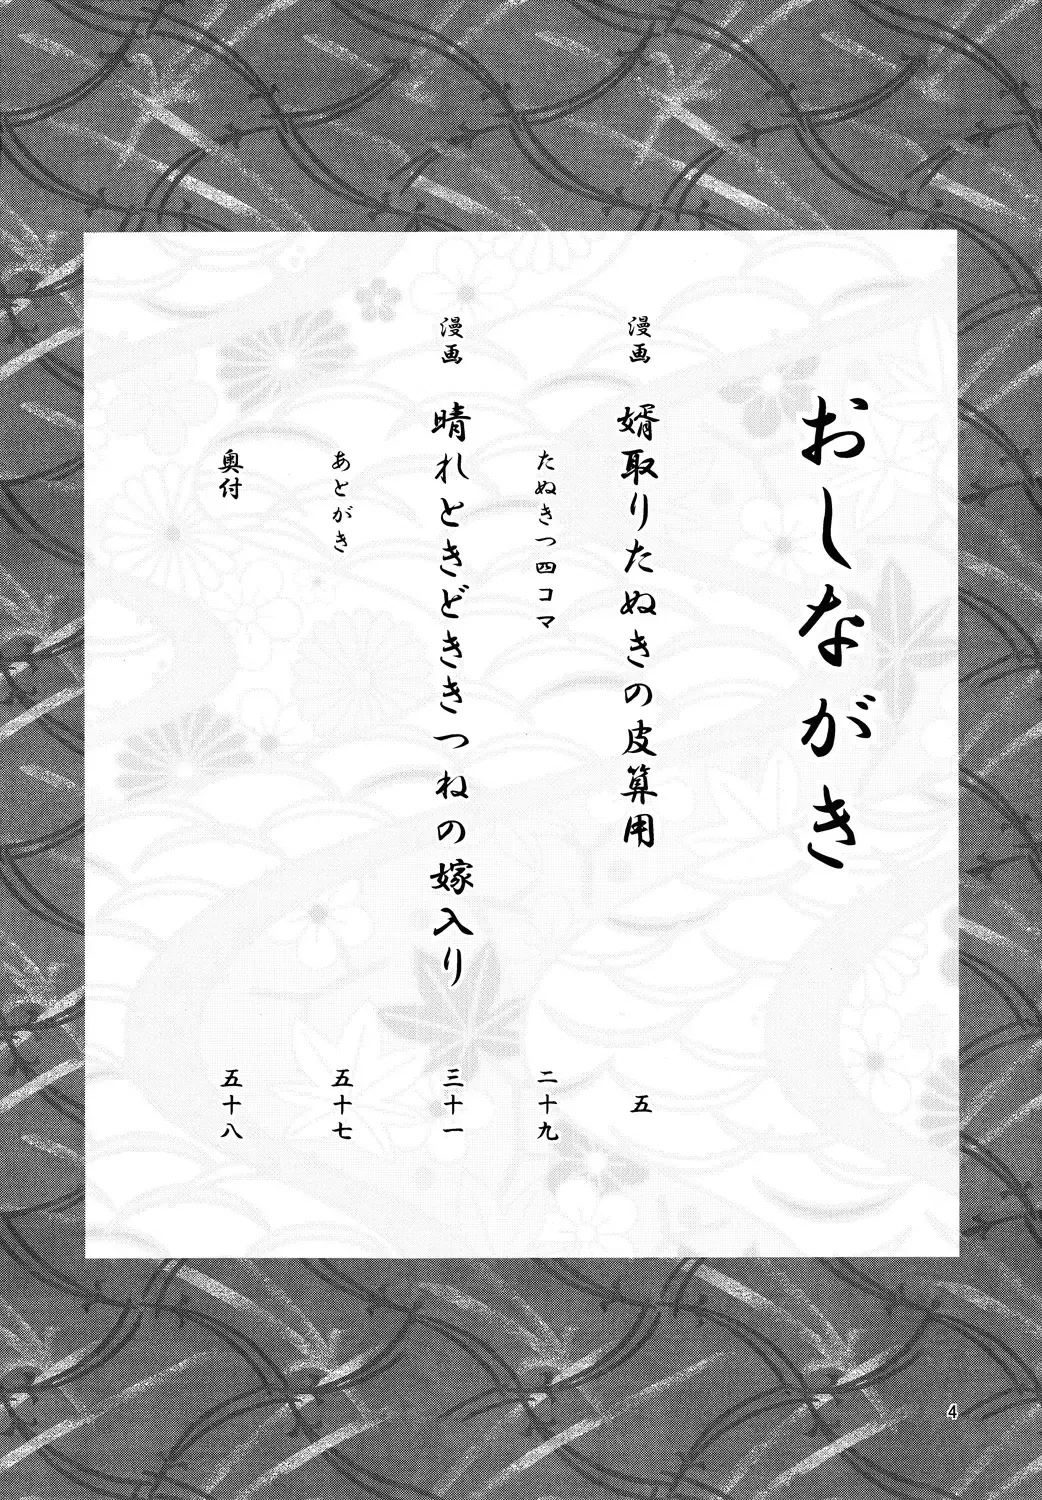 おしながき
漫画 婿取りたぬきの皮算用 五
たぬきつ四コマ 二十九
漫画 晴れときどききつねの嫁入り 三十一
あとがき 五十七
奥付 五十八
4